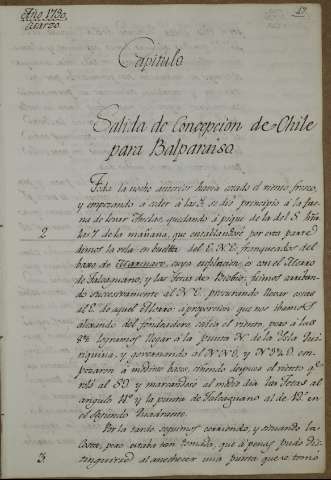 Año 1790.
Marzo.
17
Capitulo
Salida de Concepcion de Chile
para Balparaiso.
Toda la noche anterior havia estado el viento fresco,
y empezando a ceder à las se dió principio á la fae
na de levar Anclas, quedando á pique de la del S. hta
2
las 7 de la mañana, que entablandose por esta parte
dimos la vela en buelta del E.N.E. franqueados del
baxo de Marinero, cuya enfilacion es con el Morro
de Talcaguano, y las Tetas de Biobio; fuimos arriban
do succesivamente al N.E. procurando llevar
al E. de aquel Morro: à proporcion que nos ibamos
alexando del fondeadero calia el viento, pero a las
8½ logramos llegar á la punta N. de la Isla Qui
riquina, y governando al N.N.O, y N¼N.O. em
pezaron à medirse
roló al SO. y marcandose al medio dia las Tetas al
angulo y la punta de Talcaguano al de 12° en
el Segundo Quadrante.
Por la tarde seguimos corriendo, y situando la
Costa; pero estaba tan tomada, que á penas pudo dis
3
tinguirse al anochecer una punta que se tomó